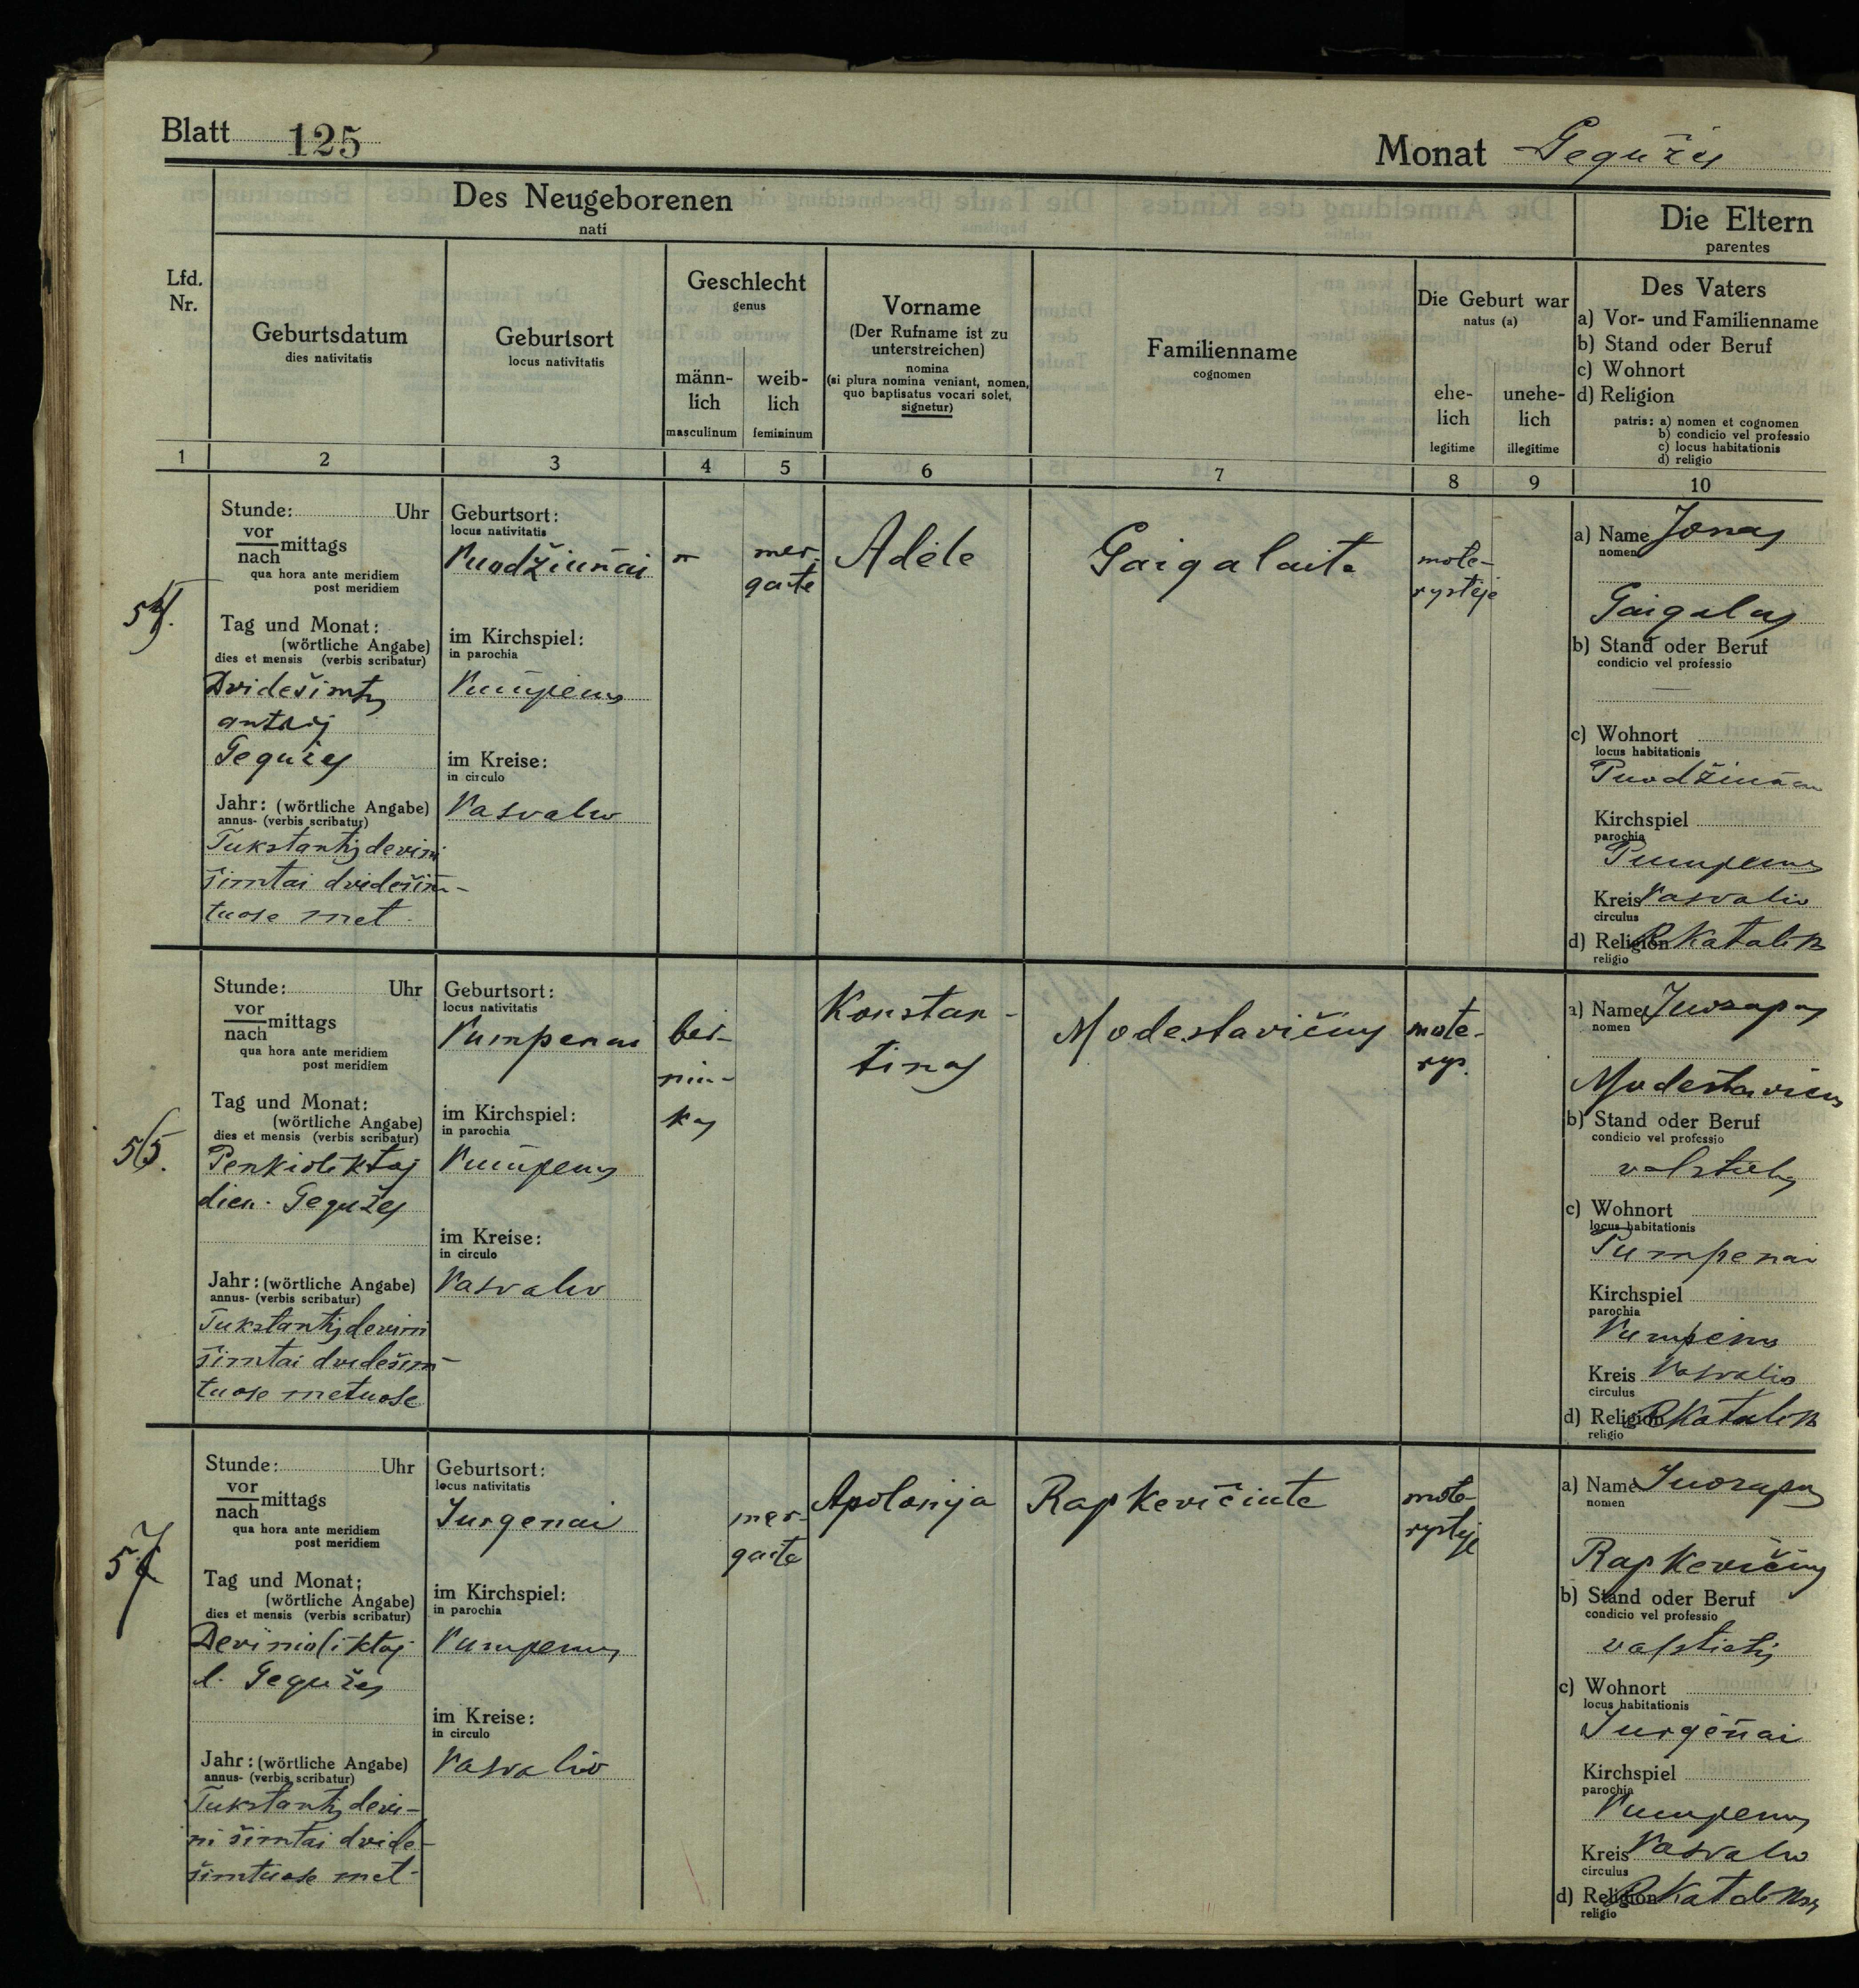 Blatt 125
Monat Gegužės
Des Neugeborenen
nati
Die Eltern
parentes
Lfd.
Nr.
Geburtsdatum
dies nativitatis
Geburtsort
locus nativitatis
Geschlecht
genus
männ-
lich
masculinum
weib-
lich
femininum
Vorname
(Der Rufname ist zu
unterstreichen)
nomina
(si plura nomina veniant, nomen,
quo baptisatus vocari solet,
signetur)
Familienname
cognomen
Die Geburt war
natus (a)
ehe-
lich
legitime
unehe-
lich
illegitime
Des Vaters
a) Vor- und Familienname
b) Stand oder Beruf
c) Wohnort
d) Religion
patris: a) nomen et cognomen
b) condicio vel professio
c) locus habitationis
d) religio
1 2 3 4 5 6 7 8 9 10
Stunde: Uhr
vor
nach mittags
qua hora ante meridiem
post meridiem
Tag und Monat:
(wörtliche Angabe)
dies et mensis (verbis scribatur)
Dvidešimts
antroj
Gegužės
Jahr: (wörtliche Angabe)
annus- (verbis scribatur)
Tukstantis devini
šimtai dvidešim-
tuose met.
Geburtsort:
locus nativitatis
Puodžiunai
im Kirchspiel:
in parochia
Pumpėnų
im Kreise:
in circulo
Pasvalio
mer-
gaitė
Adėlė
Gaigalaitė
mote-
rystėje
a) Name Jonas
nomen
Gaigalas
b) Stand oder Beruf
condicio vel professio
—
c) Wohnort
locus habitationis
Puodžiunai
Kirchspiel
parochia
Pumpėnų
Kreis Pasvalio
circulus
d) Religion R Katalik
religio
55.
Stunde: Uhr
vor
nach mittags
qua hora ante meridiem
post meridiem
Tag und Monat:
(wörtliche Angabe)
dies et mensis (verbis scribatur)
Penkioliktoj
dien. Gegužės
Jahr: (wörtliche Angabe)
annus- (verbis scribatur)
Tukstantis devini
šimtai dvidešim-
tuose metuose
Geburtsort:
locus nativitatis
Pumpenai
im Kirchspiel:
in parochia
Pumpėnų
im Kreise:
in circulo
Pasvalio
ber-
niu-
kas
Konstan-
tinas
Modestavičius
mote-
rys.
a) Name Juozapas
nomen
Modestavičius
b) Stand oder Beruf
condicio vel professio
valstietis
c) Wohnort
locus habitationis
Pumpenai
Kirchspiel
parochia
Pumpėnų
Kreis Pasvalio
circulus
d) Religion R Katalik
religio
57
Stunde: Uhr
vor
nach mittags
qua hora ante meridiem
post meridiem
Tag und Monat:
(wörtliche Angabe)
dies et mensis (verbis scribatur)
Devinioliktoj
d. Gegužės
Jahr: (wörtliche Angabe)
annus- (verbis scribatur)
Tukstantis devi-
ni šimtai dvide-
šimtuose met.
Geburtsort:
locus nativitatis
Jurgenai
im Kirchspiel:
in parochia
Pumpėnų
im Kreise:
in circulo
Pasvalio
mer-
gaitė
Apolonija
Rapkevičiutė
mote-
rystėje
a) Name Juozapas
nomen
Rapkevičius
b) Stand oder Beruf
condicio vel professio
valstietis
c) Wohnort
locus habitationis
Jurgėnai
Kirchspiel
parochia
Pumpėnų
Kreis Pasvalio
circulus
d) Religion R Katalikas
religio